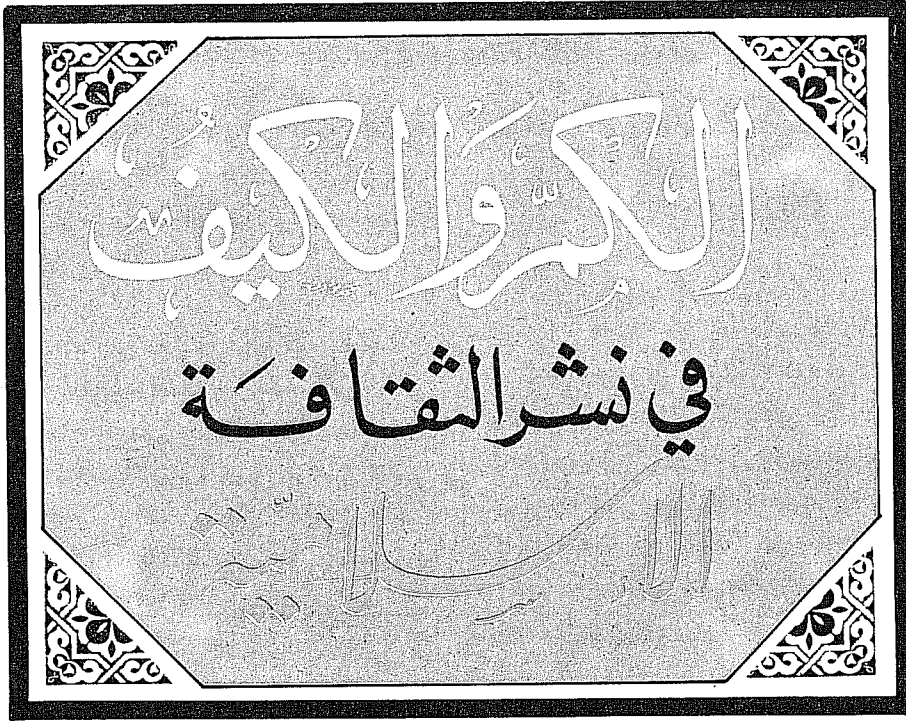 الكمّ وَالكيفُ
في نشر الثقافَة
الاسلاميّة